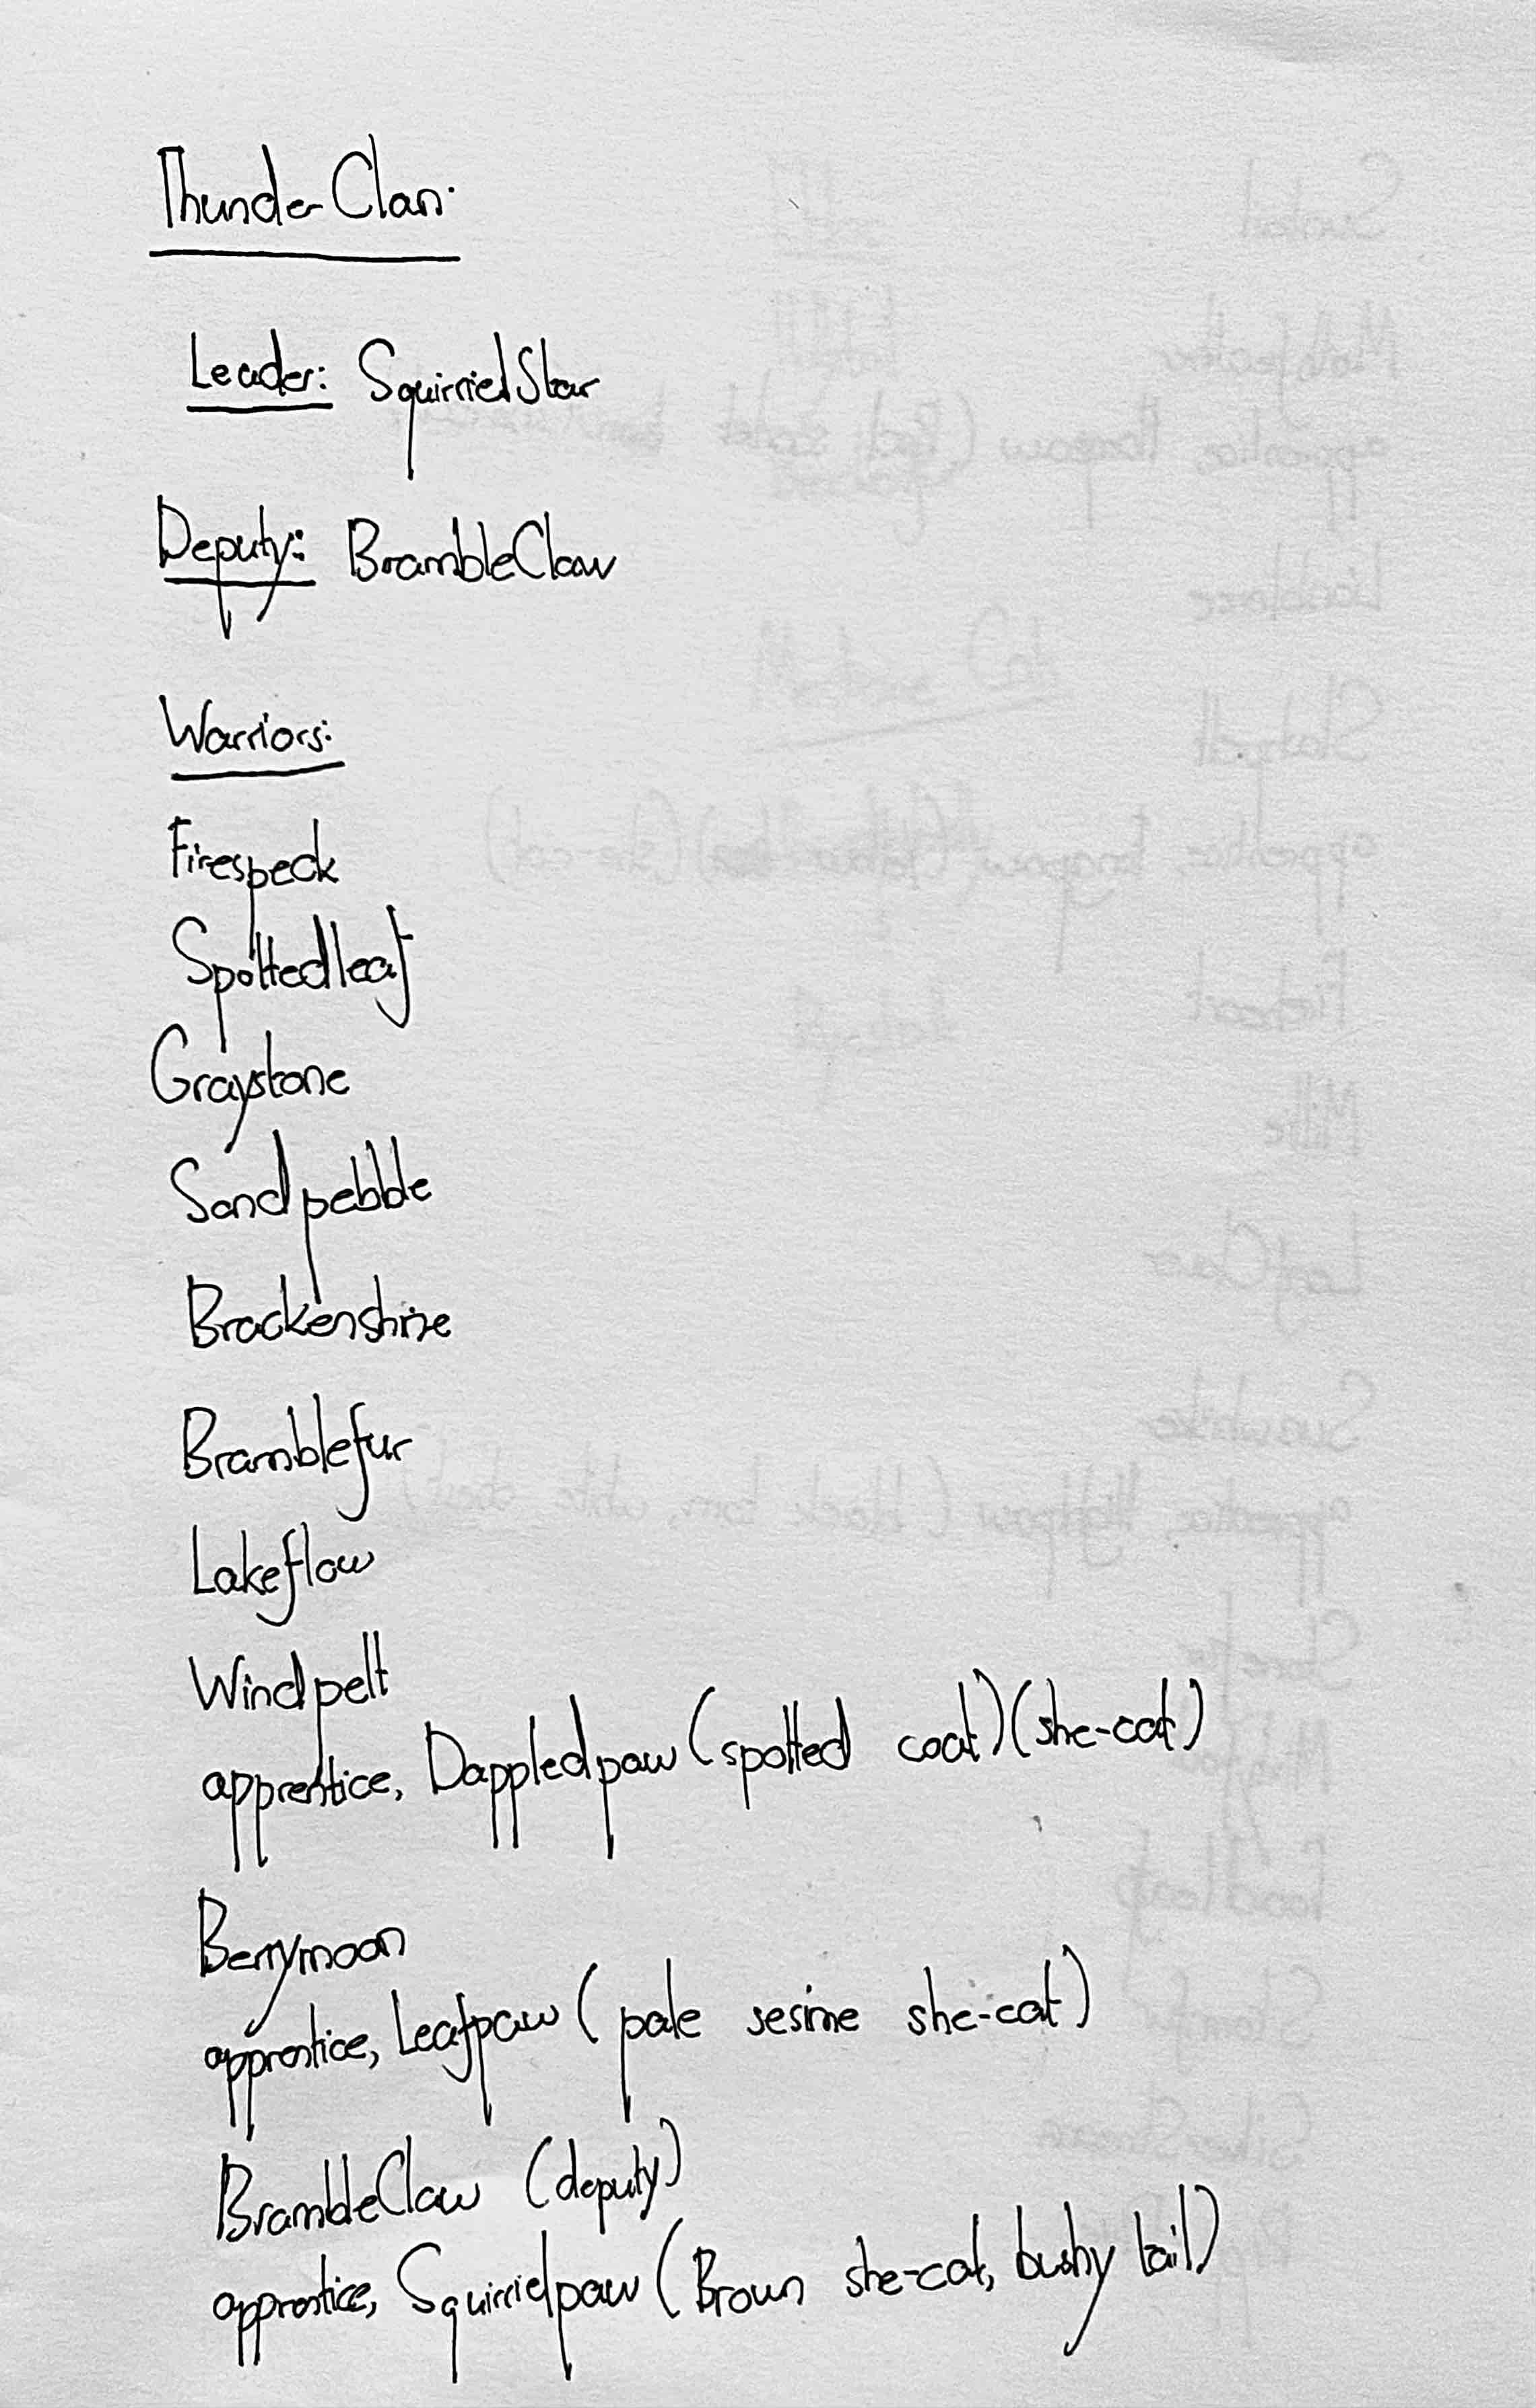 ThunderClan:
Leader: SquirrielStar
Deputy: BrambleClaw
Warriors:
Firespeck
Spottedleaf
Graystone
Sandpebble
Brackenshine
Bramblefur
Lakeflow
Windpelt
apprentice, Dappledpaw (spotted coat) (she-cat)
Berrymoon
apprentice, Leafpaw (pale sesime she-cat)
BrambleClaw (deputy)
apprentice, Squirrielpaw (Brown she-cat, bushy tail)